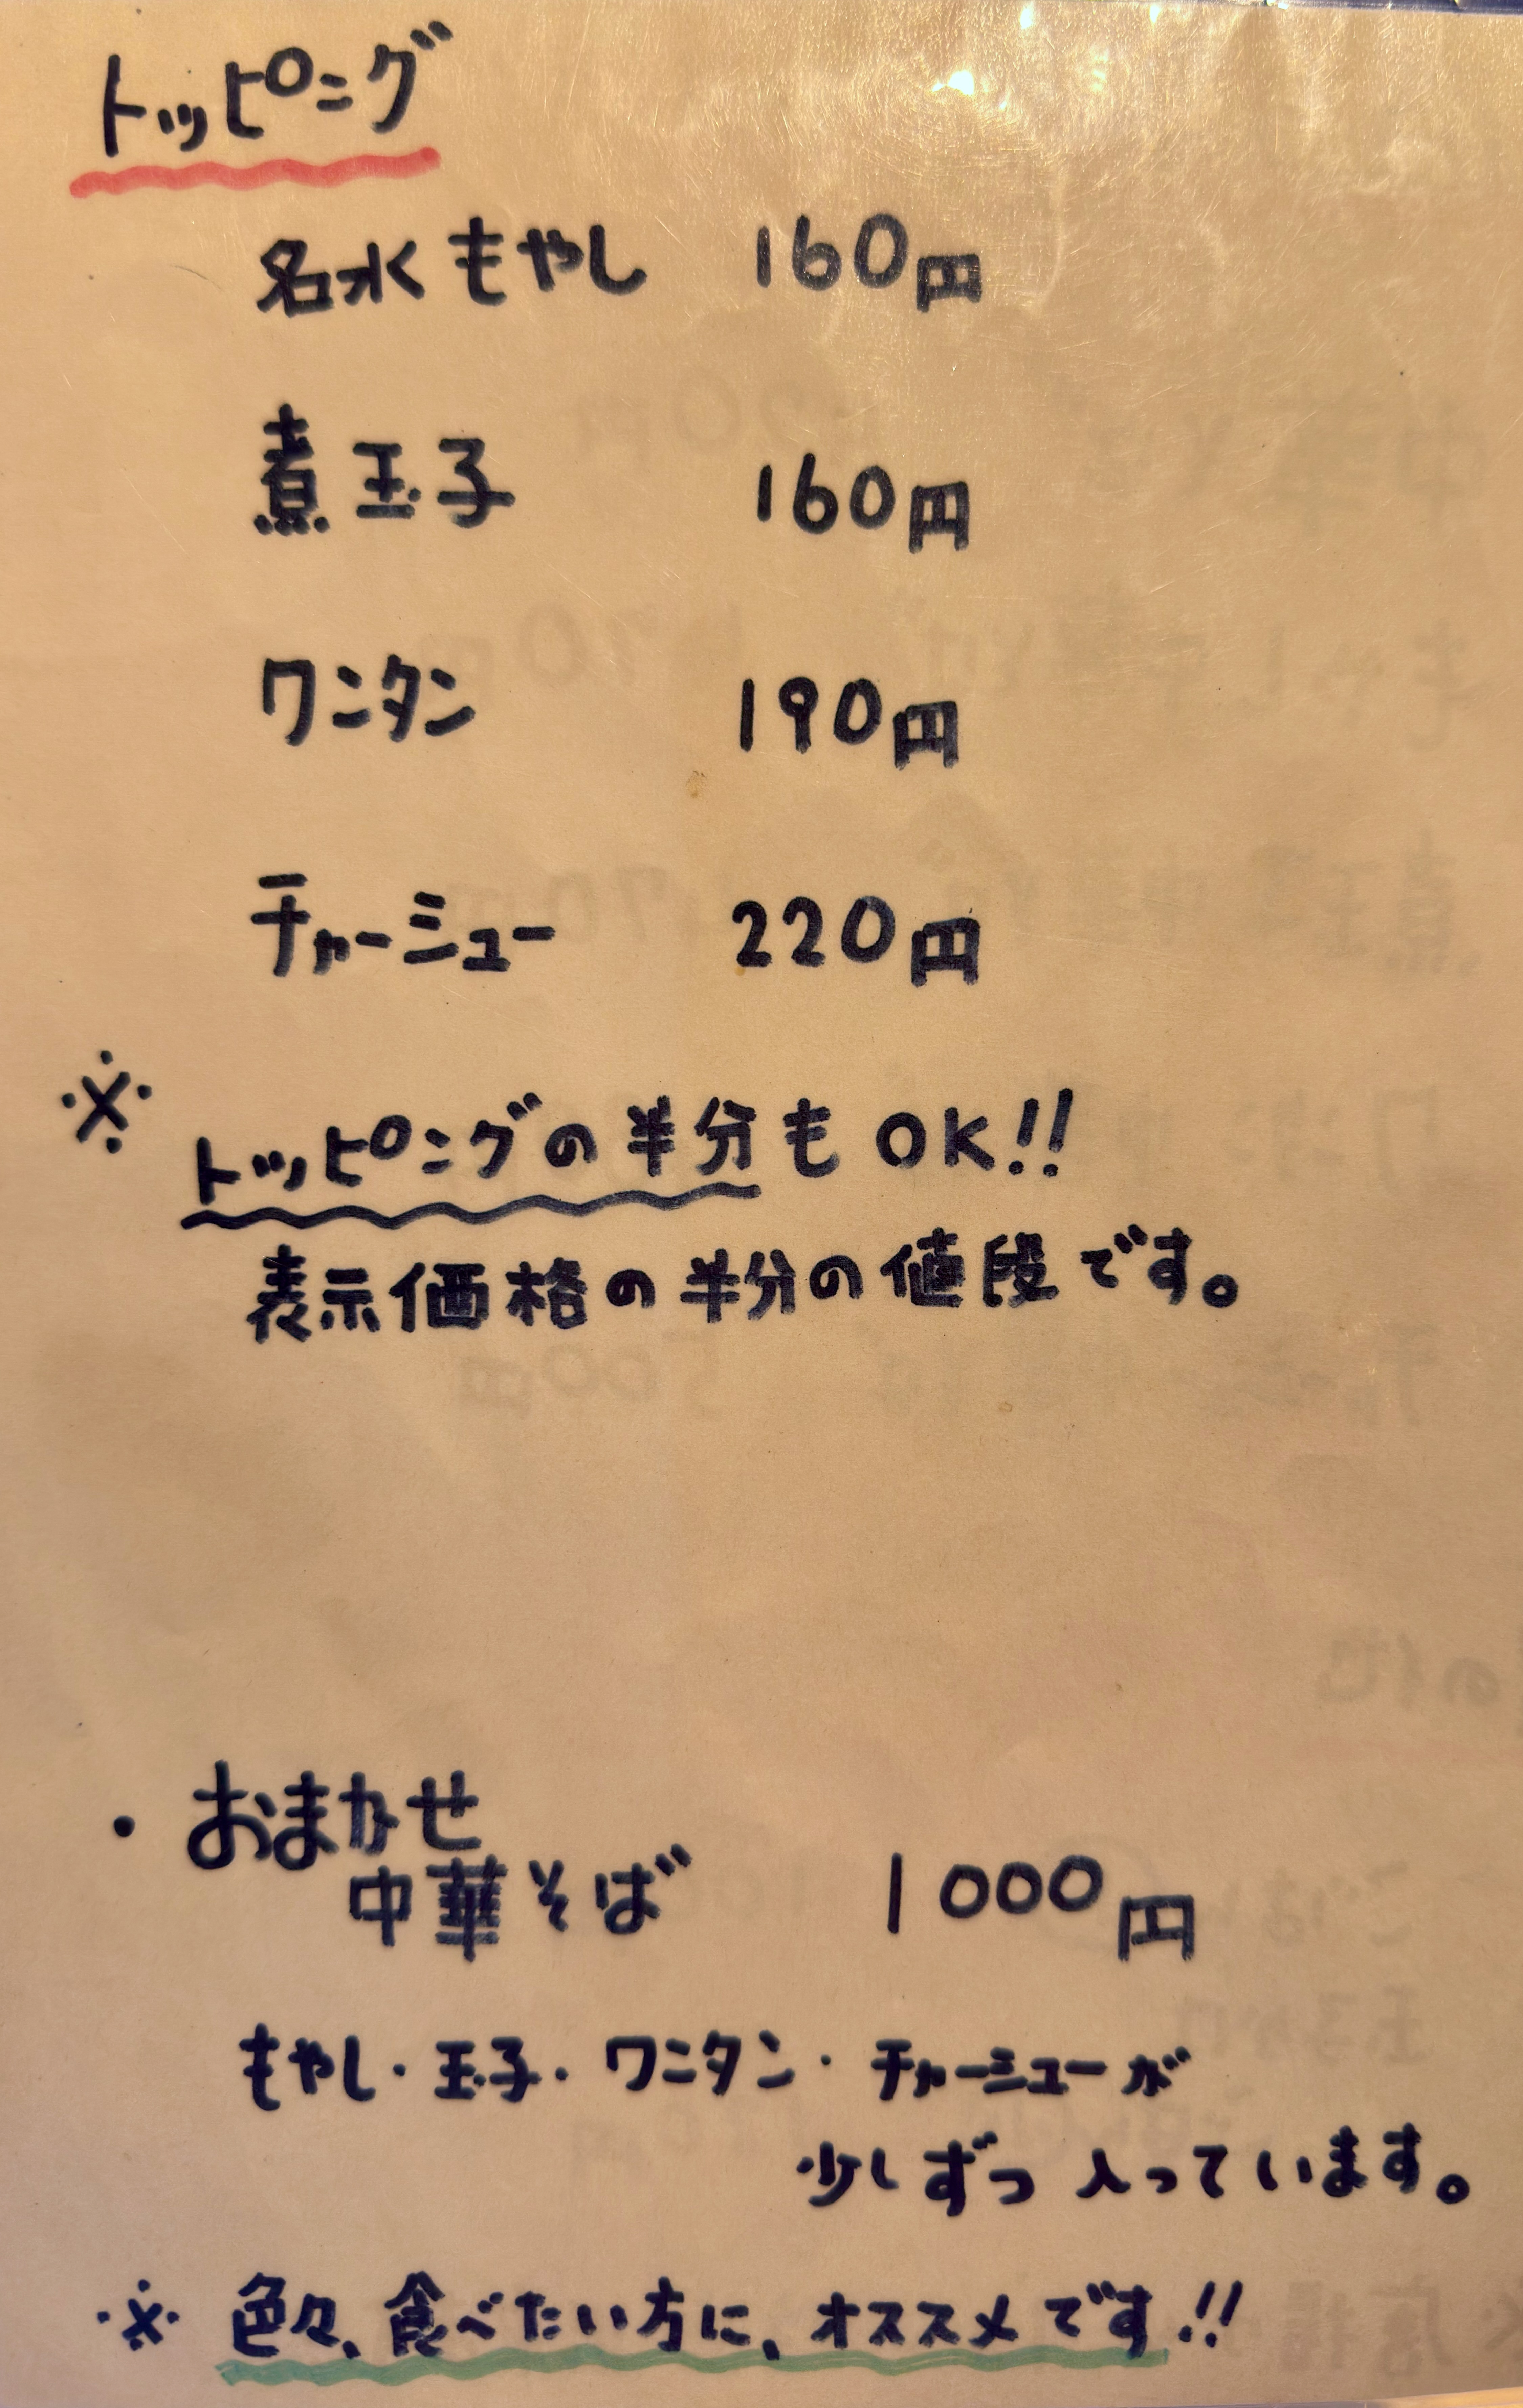 トッピング
名水もやし 160円
煮玉子 160円
ワンタン 190円
チャーシュー 220円
※
トッピングの半分もOK!!
表示価格の半分の値段です。
・おまかせ
中華そば 1000円
もやし・玉子・ワンタン・チャーシューが
少しずつ入っています。
※ 色々、食べたい方に、オススメです!!